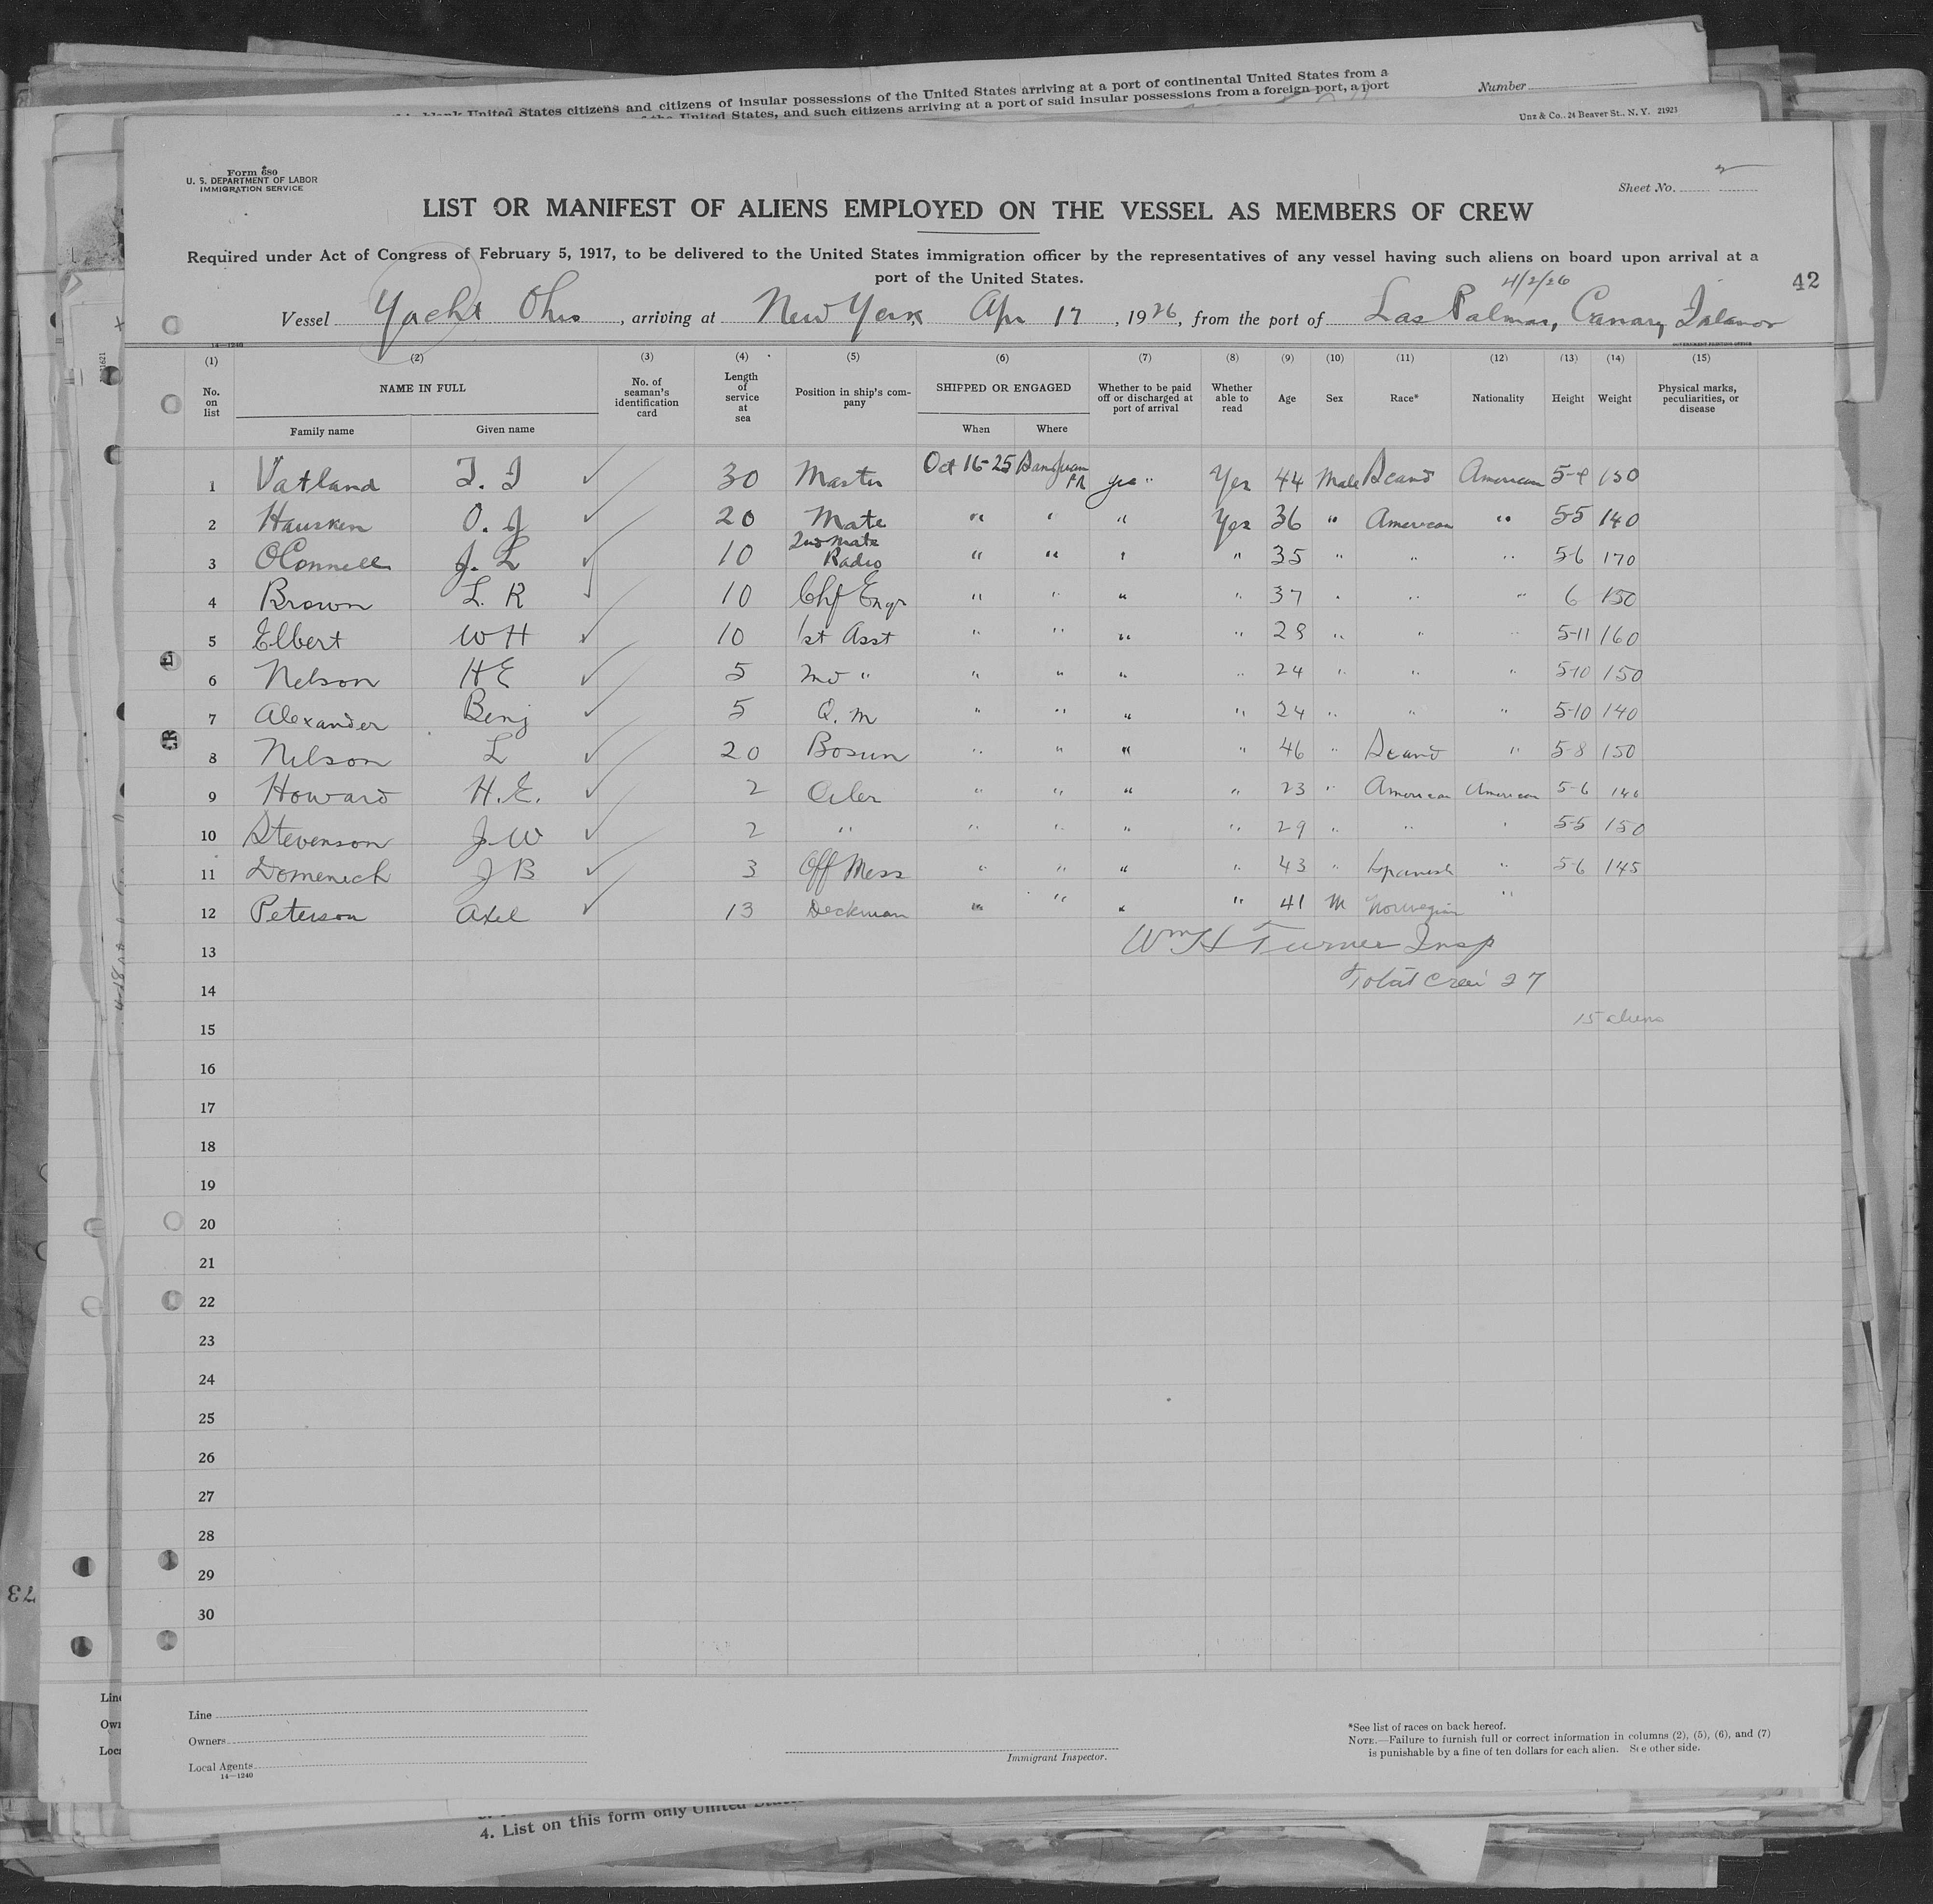 blank United States citizens and citizens of insular possessions of the United States arriving at a port of continental United States from a
of the United States, and such citizens arriving at a port of said insular possessions from a foreign port, a port
Number
Unz & Co., 24 Beaver St., N. Y. 21923
Form 680
U. S. DEPARTMENT OF LABOR
IMMIGRATION SERVICE
Sheet No. 2
LIST OR MANIFEST OF ALIENS EMPLOYED ON THE VESSEL AS MEMBERS OF CREW
Required under Act of Congress of February 5, 1917, to be delivered to the United States immigration officer by the representatives of any vessel having such aliens on board upon arrival at a
port of the United States.
4/2/26
42
Vessel Yacht Ohio, arriving at New York Apr 17, 1926, from the port of Las Palmas, Canary Islands
14—1240
GOVERNMENT PRINTING OFFICE
(1) (2) (3) (4) (5) (6) (7) (8) (9) (10) (11) (12) (13) (14) (15)
No. on list NAME IN FULL No. of seaman's identification card Length of service at sea Position in ship's company SHIPPED OR ENGAGED Whether to be paid off or discharged at port of arrival Whether able to read Age Sex Race* Nationality Height Weight Physical marks, peculiarities, or disease
Family name Given name When Where
1 Vatland T. I ✓ 30 Master Oct 16-25 San Juan PR yes " Yes 44 Male Scand American 5-9 150
2 Hausken O. J ✓ 20 Mate " " " Yes 36 " American " 5-5 140
3 OConnell J. L ✓ 10 2nd Mate Radio " " " " 35 " " " 5-6 170
4 Brown L. R ✓ 10 Chf Engr " " " " 37 " " " 6 150
5 Elbert W H ✓ 10 1st Asst " " " " 28 " " " 5-11 160
6 Nelson H E ✓ 5 2nd " " " " " 24 " " " 5-10 150
7 Alexander Benj ✓ 5 Q. M " " " " 24 " " " 5-10 140
8 Nilson L ✓ 20 Bosun " " " " 46 " Scand " 5-8 150
9 Howard H. E. ✓ 2 Oiler " " " " 23 " American American 5-6 140
10 Stevenson J. W ✓ 2 " " " " " 29 " " " 5-5 150
11 Domenech J B ✓ 3 Off Mess " " " " 43 " Spanish " 5-6 145
12 Peterson Axel ✓ 13 Deckman " " " " 41 M Norwegian "
13 Wm H Turner Insp
14 Total Crew 27
15 15 aliens
16
17
18
19
20
21
22
23
24
25
26
27
28
29
30
Line
Owners
Local Agents
14—1240
Immigrant Inspector.
*See list of races on back hereof.
NOTE.—Failure to furnish full or correct information in columns (2), (5), (6), and (7)
is punishable by a fine of ten dollars for each alien. See other side.
4. List on this form only United States